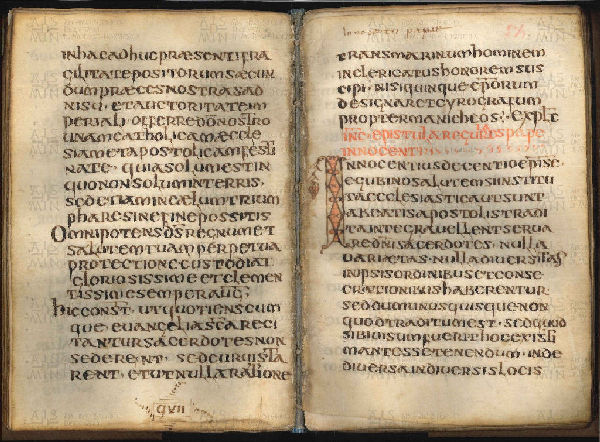 INHACADHUCPRAESENTIFRA
GILITATEPOSITORUMSAECUN
DUMPRAECESNOSTRASAD
NISU· ETAUCTORITATEIM
PERIALI· OFFERREDNOSTRO
UNAMCATHOLICAMAECCLE
SIAMETAPOSTOLICAMFESTI
NATE· QUIASOLUMESTIN
QUONONSOLUMINTERRIS·
SEDETIAMINCAELUMTRIUM
PHARESINEFINEPOSSITIS
OMNIPOTENSDSREGNUMET
SALUTEMTUAMPERPETUA
PROTECTIONECUSTODIAT
GLORIOSISSIMEETCLEMEN
TISSIMESEMPERAUG·
HICCONST· UTQUOTIENSCUM
QUE· EUANGELIASCTARECI
TANTURSACERDOTESNON
SEDERENT· SEDCURUISTA
RENT· ETUTNULLARATIONE
QVII
TRANSMARINUMHOMINEM
INCLERICATUSHONOREMSUS
CIPI· NISIQUINQUEEPORUM
DESIGNARETCYROGRAFUM
PROPTERMANICHEOS· EXPLT
INC· EPISTULAREGULISPAPE
INNOCENTI
INNOCENTIUSDECENTIOEPISC·
EGUBINOSALUTEMSIINSTITU
TAAECCLESIASTICAUTSUNT
ABEATISAPOSTOLISTRADI
TAINTEGRAUELLENTSERUA
REDNISACERDOTES· NULLA
UARIAETAS· NULLADIUERSITAS
INIPSISORDINIBUSETCONSE
CRATIONIBUSHABERENTUR·
SEDDUMUNUSQUISQUENON
QUODTRADITUMEST· SEDQUOD
SIBIUISUMFUERITHOCEXISTI
MANTESSETENENDUM· INDE
DIUERSAINDIUERSISLOCIS